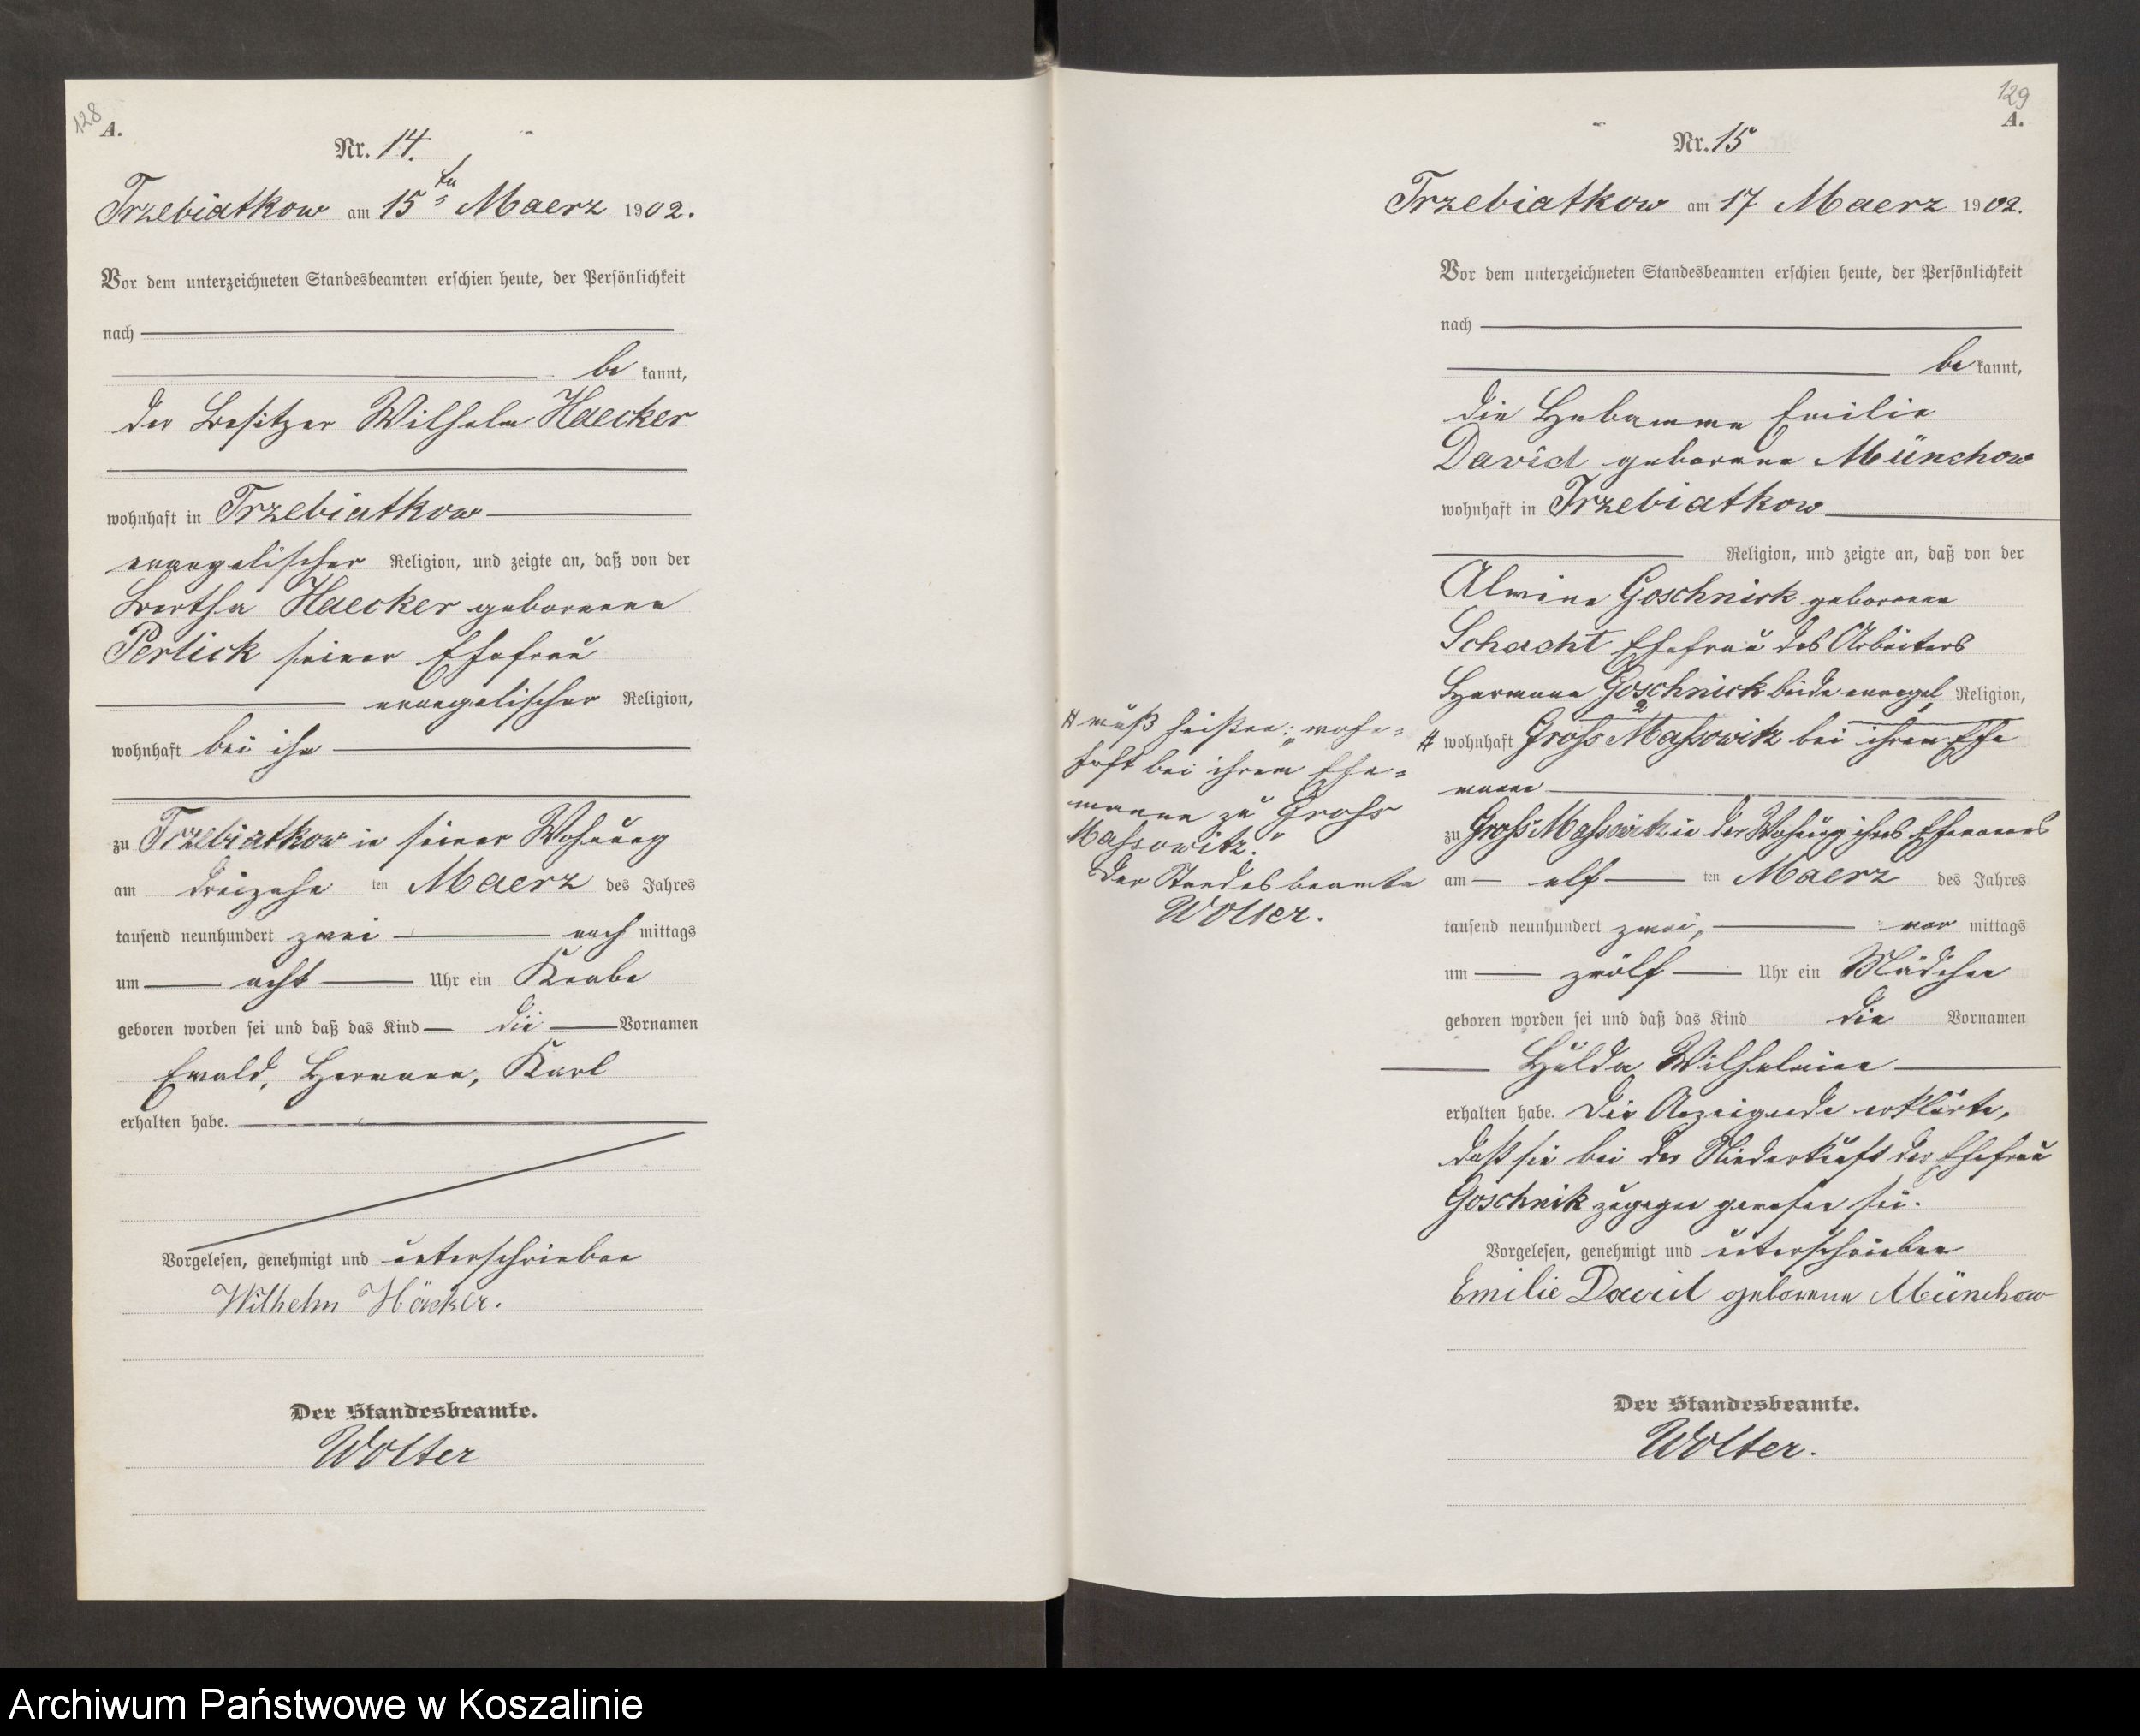 128
A.
Nr. 14.
Trzebiatkow am 15ten Maerz 1902.
Vor dem unterzeichneten Standesbeamten erschien heute, der Persönlichkeit
nach
be kannt,
der Besitzer Wilhelm Haecker
wohnhaft in Trzebiatkow
evangelischer Religion, und zeigte an, daß von der
Bertha Haecker geborenen
Perlick seiner Ehefrau
evangelischer Religion,
wohnhaft bei ihm
zu Trzebiatkow in seiner Wohnung
am dreizehn ten Maerz des Jahres
tausend neunhundert zwei nach mittags
um acht Uhr ein Knabe
geboren worden sei und daß das Kind die Vornamen
Ewald, Hermann, Karl
erhalten habe.
Vorgelesen, genehmigt und unterschrieben
Wilhelm Häcker.
Der Standesbeamte.
Wolter
129
A.
Nr. 15
Trzebiatkow am 17 Maerz 1902.
Vor dem unterzeichneten Standesbeamten erschien heute, der Persönlichkeit
nach
be kannt,
die Hebamme Emilie
David geborene Münchow
wohnhaft in Trzebiatkow
Religion, und zeigte an, daß von der
Alwine Goschnick geborenen
Schacht Ehefrau des Arbeiters
Hermann Goschnick beide evangel. Religion,
# wohnhaft Gross Massowitz bei ihrem Ehe
manne
zu Gross Massowitz in der Wohnung ihres Ehemannes
am elf ten Maerz des Jahres
tausend neunhundert zwei, vor mittags
um zwölf Uhr ein Mädchen
geboren worden sei und daß das Kind die Vornamen
Hulda Wilhelmine
erhalten habe. Die Anzeigende erklärte,
daß sie bei der Niederkunft der Ehefrau
Goschnik zugegen gewesen sei.
Vorgelesen, genehmigt und unterschrieben
Emilie David geborene Münchow
Der Standesbeamte.
Wolter.
# muß heißen: „wohn=
haft bei ihrem Ehe=
manne zu Gross
Massowitz."
Der Standesbeamte
Wolter.
Archiwum Państwowe w Koszalinie